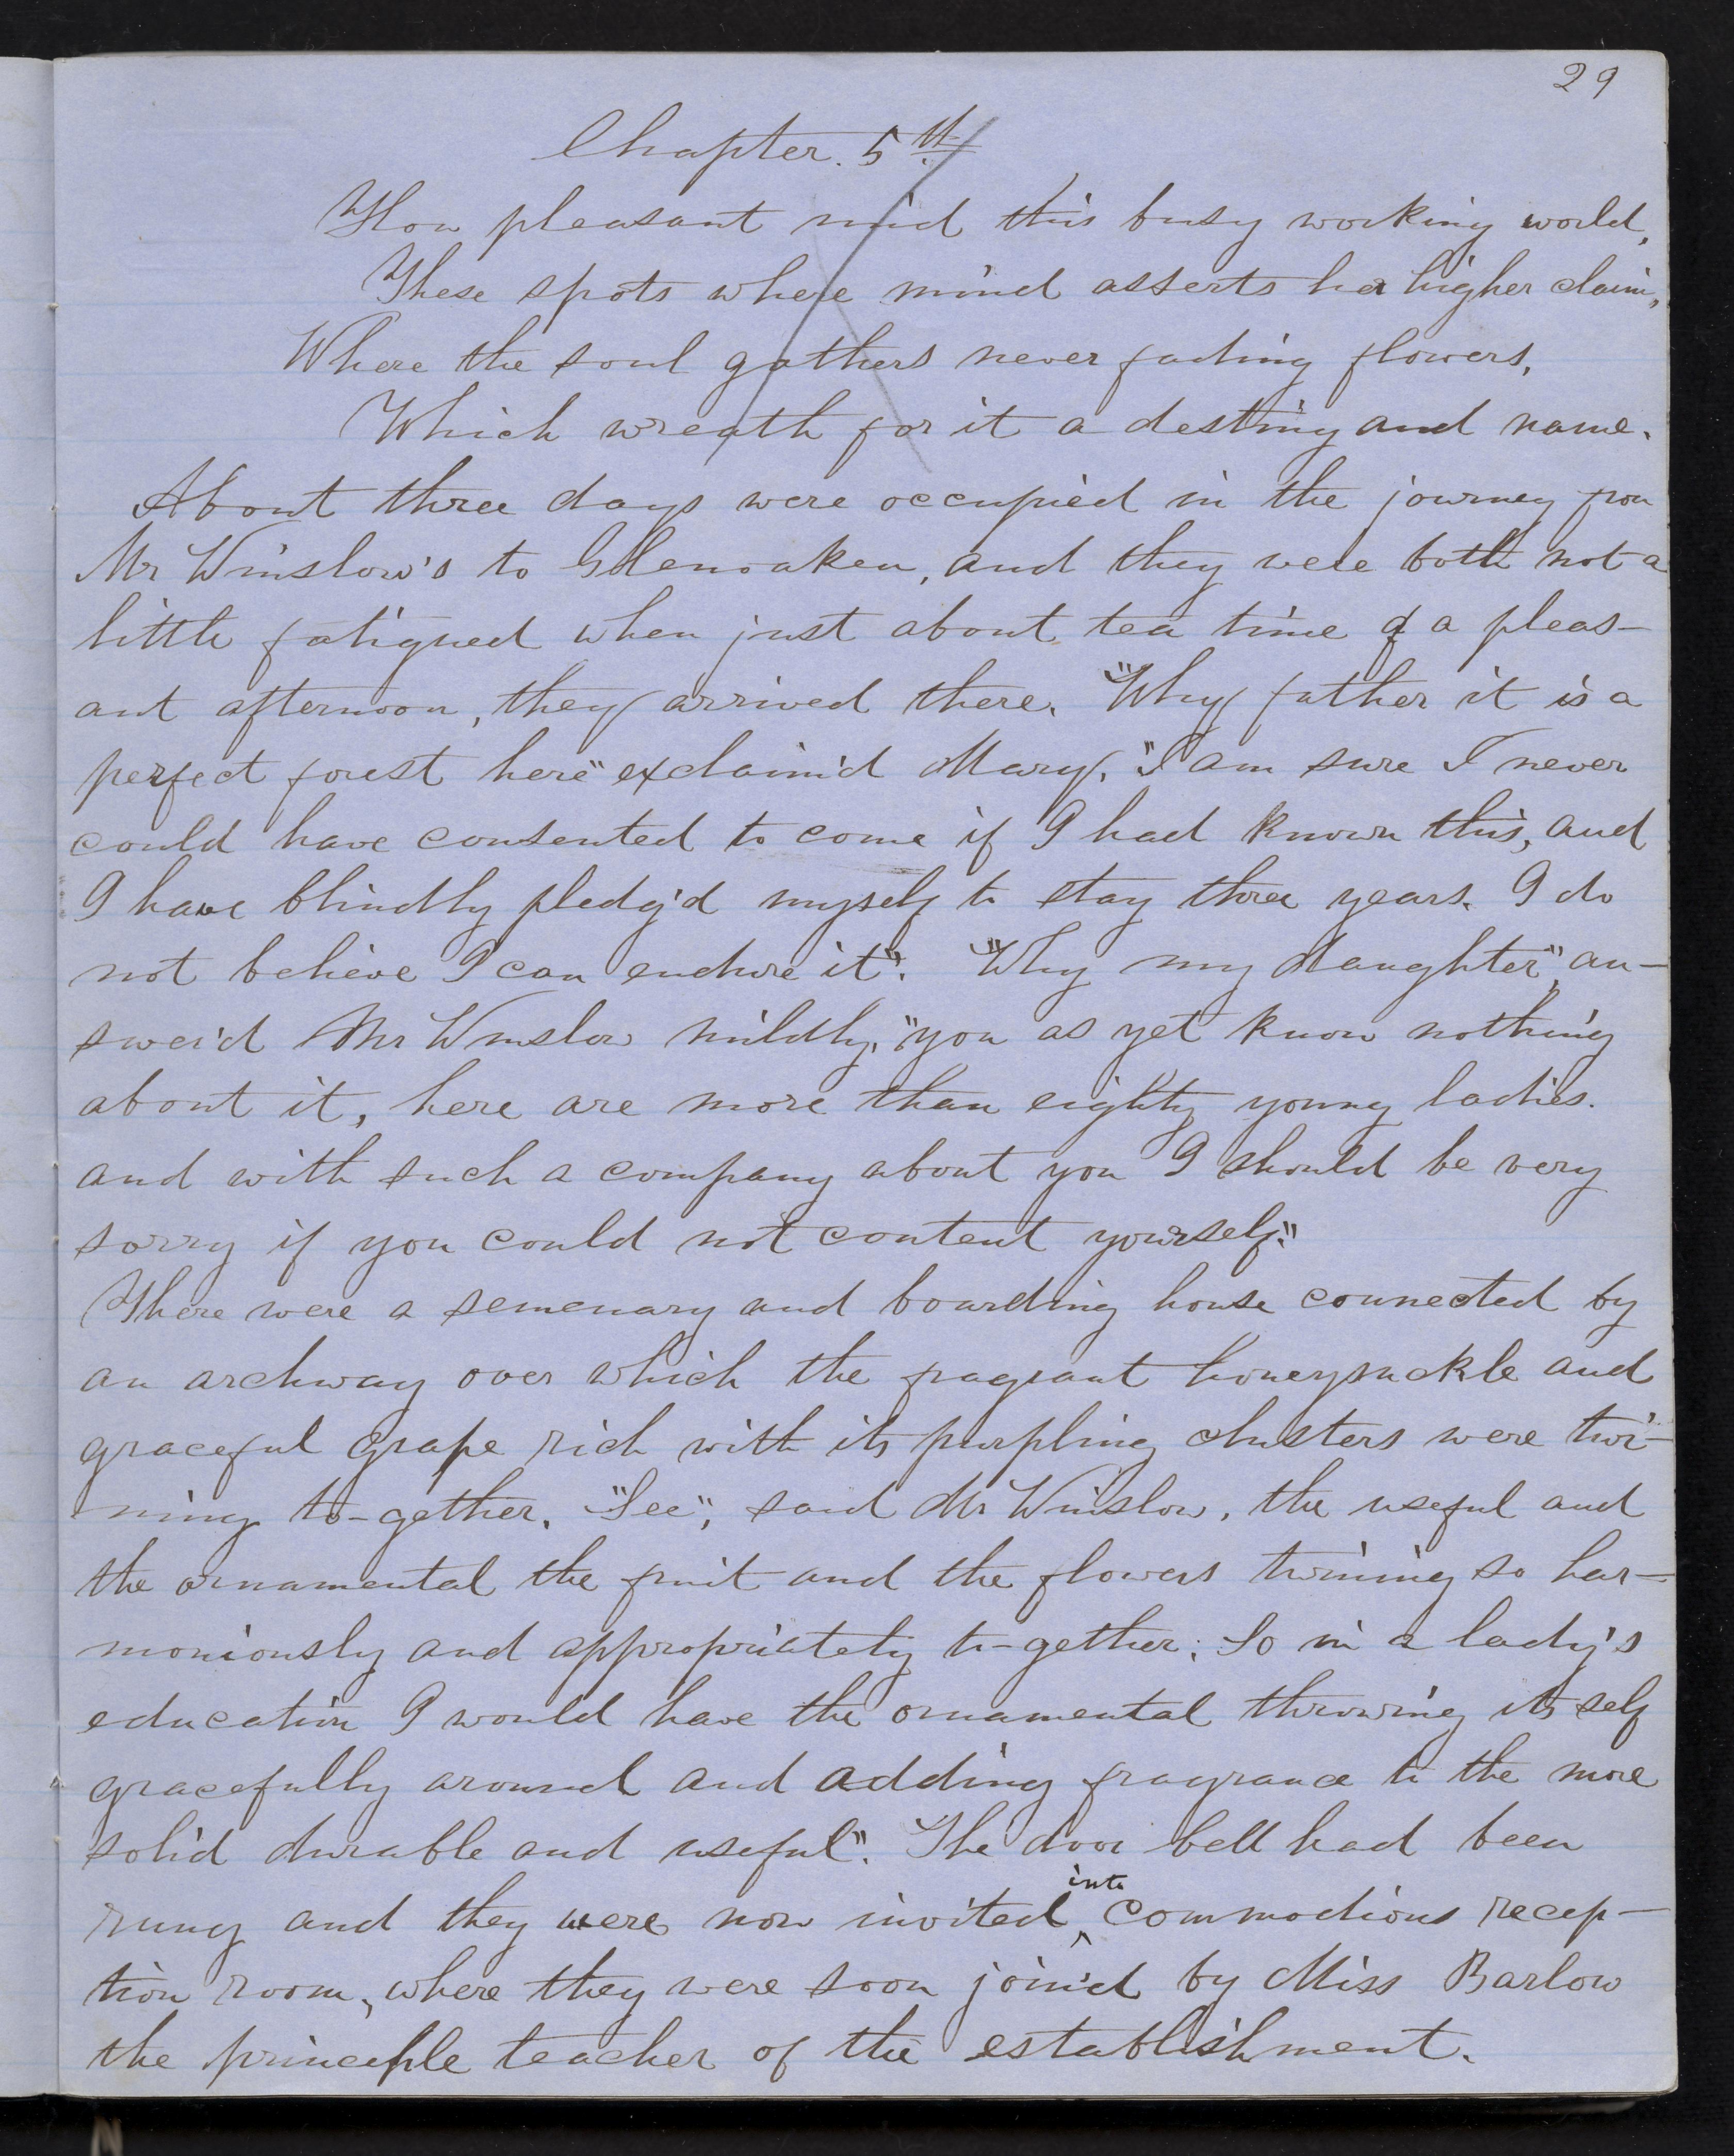 29
Chapter. 5th
How pleasant mid this busy working world,
These spots where mind asserts her higher claim,
Where the soul gathers never fading flowers,
Which wreath for it a destiny and name.
About three days were occupied in the journey from
Mr Winslow's to Glenoaken, and they were both not a
little fatigued when just about tea time of a pleas-
ant afternoon, they arrived there. "Why father it is a
perfect forest here" exclaim'd Mary, "I am sure I never
could have consented to come if I had known this, and
I have blindly pledg'd myself to stay three years. I do
not believe I can endure it". "Why my daughter", an-
swer'd Mr Winslow mildly, "you as yet know nothing
about it, here are more than eighty young ladies.
and with such a company about you I should be very
sorry if you could not content yourself."
There were a semenary and boarding house connected by
an archway over which the fragrant honeysuckle and
graceful grape rich with its purpling clusters were twi-
ning to-gether. "See", said Mr Winslow, the useful and
the ornamental the fruit and the flowers twining so har-
moniously and appropriately to-gether; So in a lady's
education I would have the ornamental throwing its self
gracefully around and adding fragrance to the more
solid durable and useful". The door bell had been
rung and they were now invited into commodious recep-
tion room, where they were soon join'd by Miss Barlow
the principle teacher of the establishment.